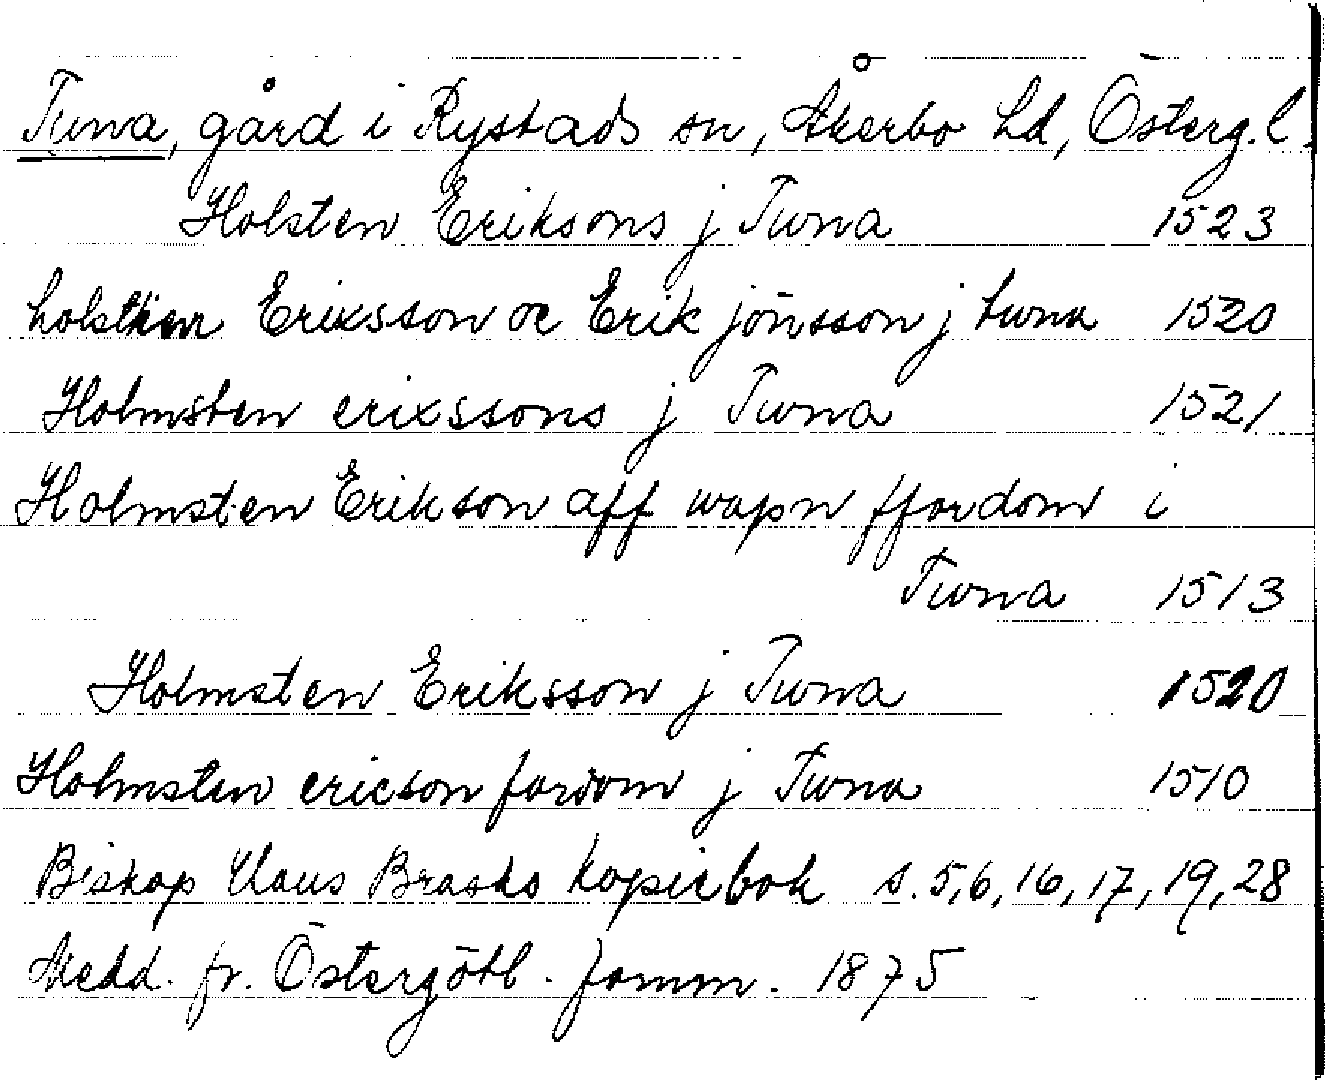 Tuna, gård i Rystads sn, Åkerbo hd, Österg.l.
Holsten Eriksons j Tuna 1523
holsten Erixsson oc Erik jönsson j tuna 1520
Holmsten erixssons j Tuna 1521
Holmsten Erikson aff wapn ffordom i
Tuna 1513
Holmsten Eriksson j Tuna 1520
Holmsten ericson fordom j Tuna 1510
Biskop Klaus Brasks kopiebok s. 5,6,16,17,19,28
Medd. fr. Östergötl. fornm. 1875